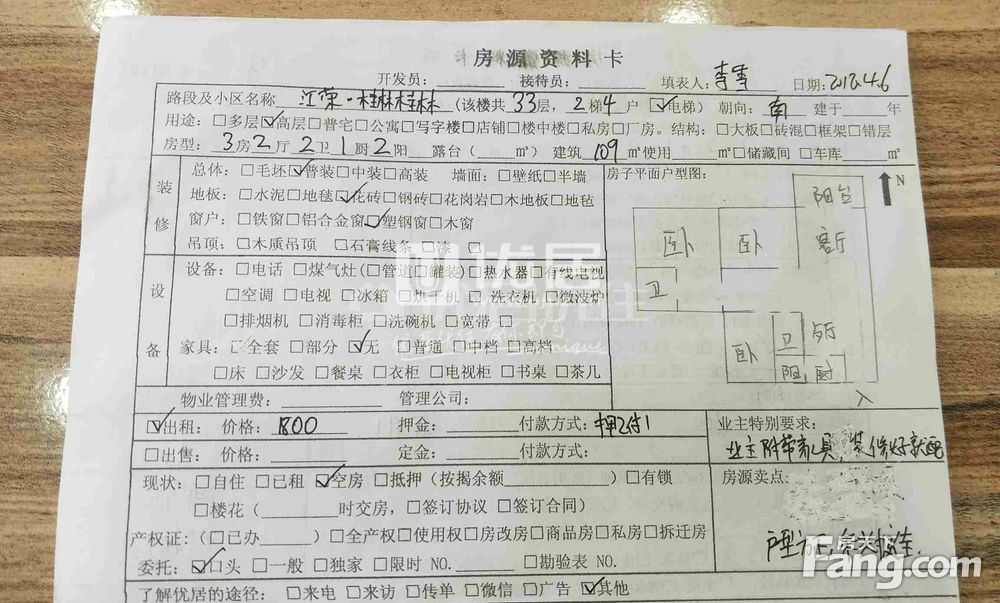 房源资料卡
开发员： 接待员： 填表人： 日期：2017.4.6
路段及小区名称 江荣·桂林桂林 (该楼共33层，2梯4户 ☑电梯) 朝向：南 建于 年
用途：□多层☑高层□普宅□公寓□写字楼□店铺□楼中楼□私房□厂房。结构：□大板□砖混□框架□错层
房型：3房2厅2卫1厨2阳 露台( ㎡) 建筑109㎡使用 ㎡□储藏间□车库 ㎡
装修
总体：□毛坯☑普装□中装□高装 墙面：□壁纸□半墙
地板：□水泥□地毯☑花砖□钢砖□花岗岩□木地板□地毡
窗户：□铁窗□铝合金窗☑塑钢窗□木窗
吊顶：□木质吊顶 □石膏线条 □漆 □
设备
设备：□电话 □煤气灶(□管道□罐装)□热水器□有线电视
□空调 □电视 □冰箱 □烘干机 □洗衣机 □微波炉
□排烟机 □消毒柜 □洗碗机 □宽带 □
家具：□全套 □部分 ☑无 □普通 □中档 □高档
□床 □沙发 □餐桌 □衣柜 □电视柜 □书桌 □茶几
房子平面户型图：
N
阳台
卧 卧 客厅
卫
卧 卫
阳 厨
入
物业管理费： 管理公司：
☑出租：价格：1800 押金： 付款方式：押2付1
□出售：价格： 定金： 付款方式：
业主特别要求：
现状：□自住 □已租 ☑空房 □抵押(按揭余额 ) □有锁
□楼花( 时交房，□签订协议 □签订合同)
产权证：(□已办 )□全产权□使用权□房改房□商品房□私房□拆迁房
委托：☑口头 □一般 □独家 □限时 NO. □勘验表 NO.
了解优居的途径：□来电 □来访 □传单 □微信 □广告 ☑其他
房源卖点：
优居
房天下
Fang.com